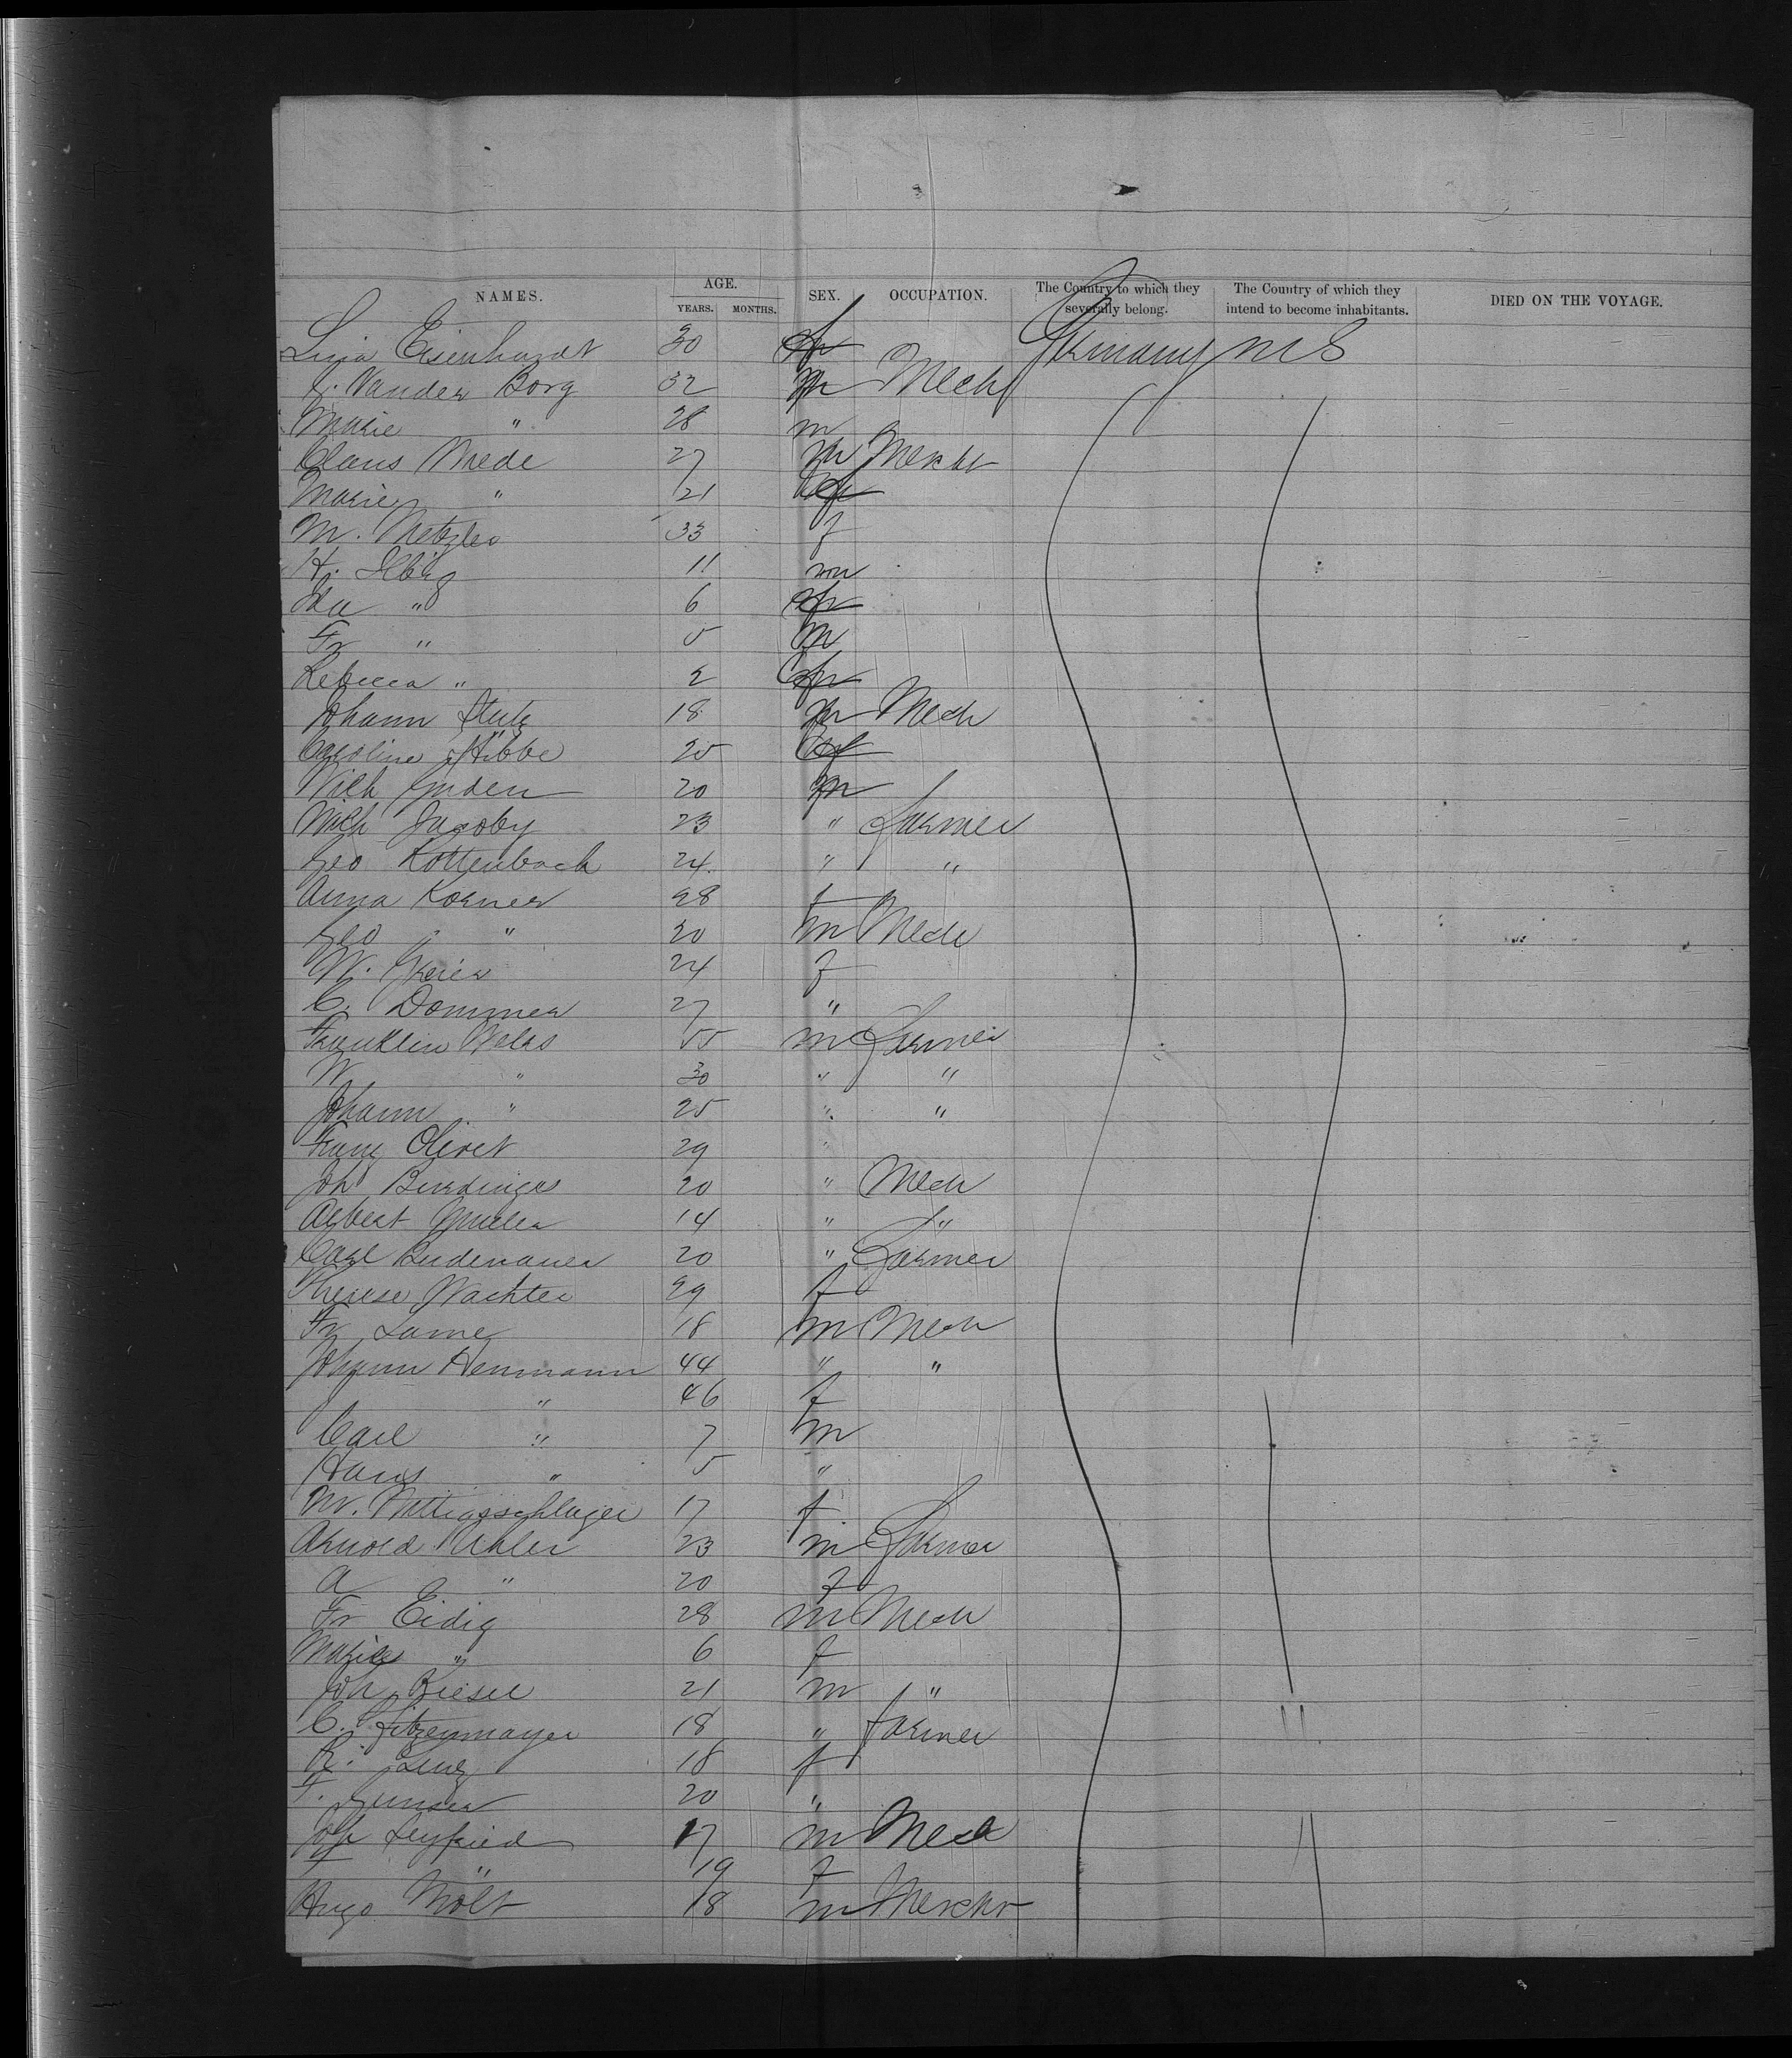 NAMES. AGE. YEARS. MONTHS. SEX. OCCUPATION. The Country to which they severally belong. The Country of which they intend to become inhabitants. DIED ON THE VOYAGE.
Eisenhardt 30 Germany
Vander Borg 32 Mech
Marie " 28 m
Claus Mede 27 m Mercht
Marie " 21
M. Metzler 33 f
H. Ilbig 11 m
Ida " 6
Fr " 5 m
Rebecca " 2
Johann Stutz 18 m Mech
Caroline Stibbe 25
Nich Guden 20 m
Nich Jacoby 23 " Farmer
Geo Kottenbach 24 " "
Anna Korner 28 f
Geo " 30 m Mech
24 f
C. Dommer 27 "
Franklin 55 m Farmer
W " 30 " "
Johann " 25 " "
Franz Olivet 29 "
Joh 20 " Mech
Albert 14 " "
Carl 20 " Farmer
Therese Wachter 29 f
Fr 18 m Mech
Johann Hermann 44 " "
" 46 f
Carl " 7 m
Hans " 5 "
M. 17 f
Arnold Uhler 23 m Farmer
A " 20 f
Fr Eidig 28 m Mech
Marie " 6 f
Joh Riesel 21 m "
C. Fitzenmayer 18 " Farmer
R. 18 f
F. 20 "
Seyfried 17 m Mech
F " 19 f
Hugo Mölt 18 m Mercht